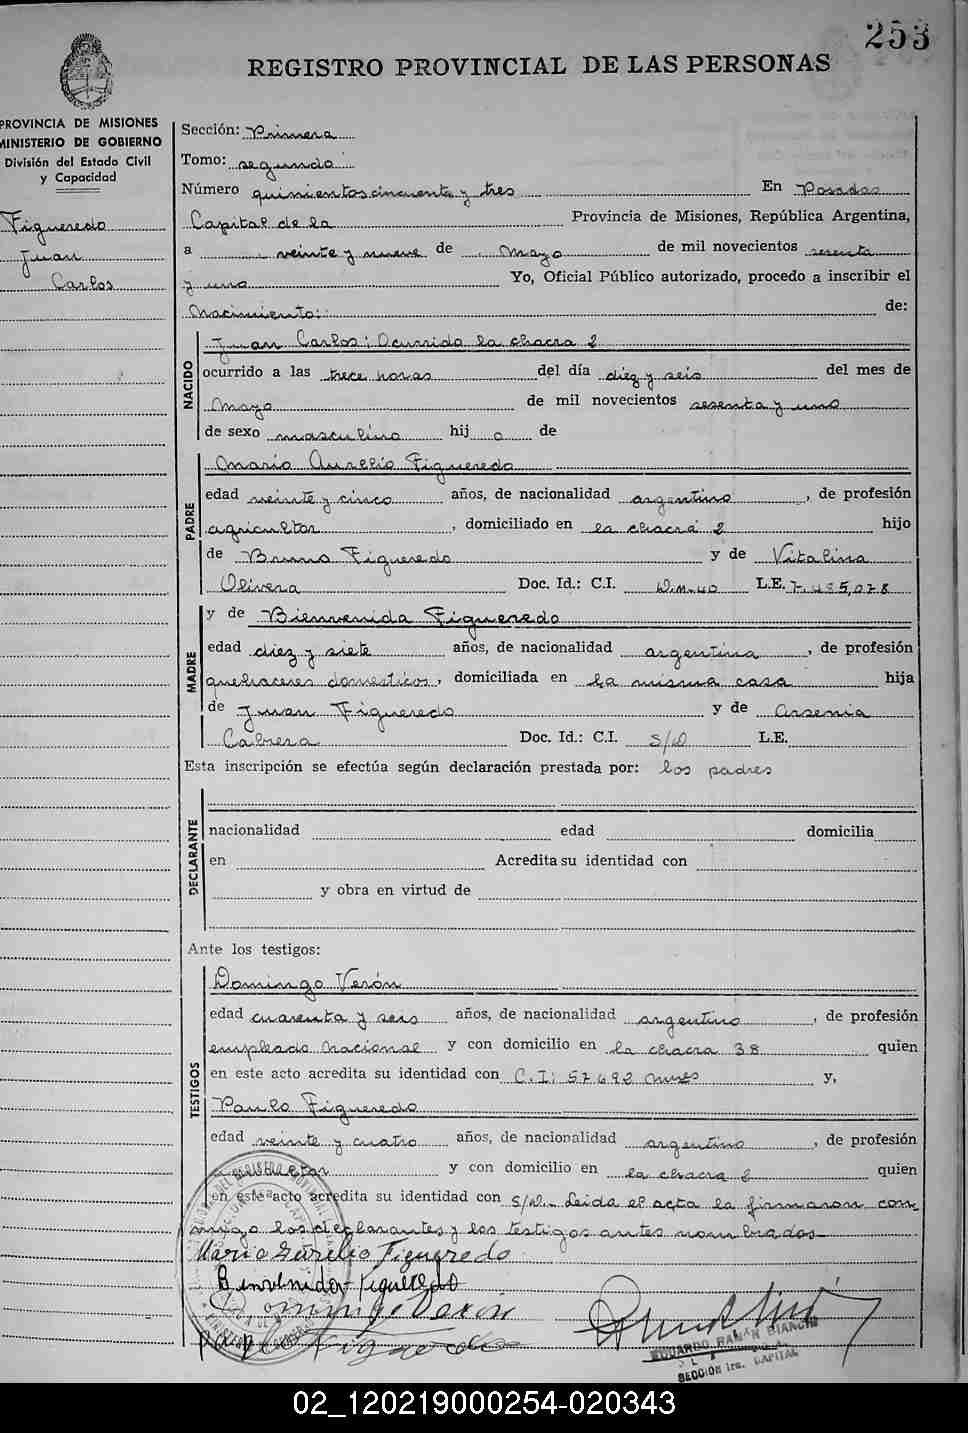 253
REGISTRO PROVINCIAL DE LAS PERSONAS
PROVINCIA DE MISIONES
MINISTERIO DE GOBIERNO
División del Estado Civil
y Capacidad
Figueredo
Juan
Carlos
Sección: Primera
Tomo: segundo
Número quinientos cincuenta y tres En Posadas
Capital de la Provincia de Misiones, República Argentina,
a veinte y nueve de Mayo de mil novecientos sesenta
y uno Yo, Oficial Público autorizado, procedo a inscribir el
Nacimiento: de:
NACIDO
Juan Carlos: Ocurrido la chacra 2
ocurrido a las trece horas del día diez y seis del mes de
Mayo de mil novecientos sesenta y uno
de sexo masculino hij o de
PADRE
Mario Aurelio Figueredo
edad veinte y cinco años, de nacionalidad argentino, de profesión
agricultor, domiciliado en la chacra 2 hijo
de Bruno Figueredo y de Vitalina
Olivera Doc. Id.: C.I. D.M.40 L.E. 7.485,078
MADRE
y de Bienvenida Figueredo
edad diez y siete años, de nacionalidad argentina, de profesión
quehaceres domesticos, domiciliada en la misma casa hija
de Juan Figueredo y de Arsenia
Cabrera Doc. Id.: C.I. S/D L.E.
Esta inscripción se efectúa según declaración prestada por: los padres
DECLARANTE
nacionalidad edad domicilia
en Acredita su identidad con
y obra en virtud de
Ante los testigos:
TESTIGOS
Domingo Verón
edad cuarenta y seis años, de nacionalidad argentino, de profesión
empleado nacional y con domicilio en la chacra 38 quien
en este acto acredita su identidad con C.I: 57692 mnes y,
Paulo Figueredo
edad veinte y cuatro años, de nacionalidad argentino, de profesión
y con domicilio en la chacra 2 quien
en este acto acredita su identidad con S/D. Leida el acta la firmaron con
migo los declarantes y los testigos antes nombrados
Mario Aurelio Figueredo
Bienvenida Figueredo
Domingo Veron
Figueredo
EDUARDO RAMÓN BIANCHI
SECCION 1ra. CAPITAL
02_120219000254-020343